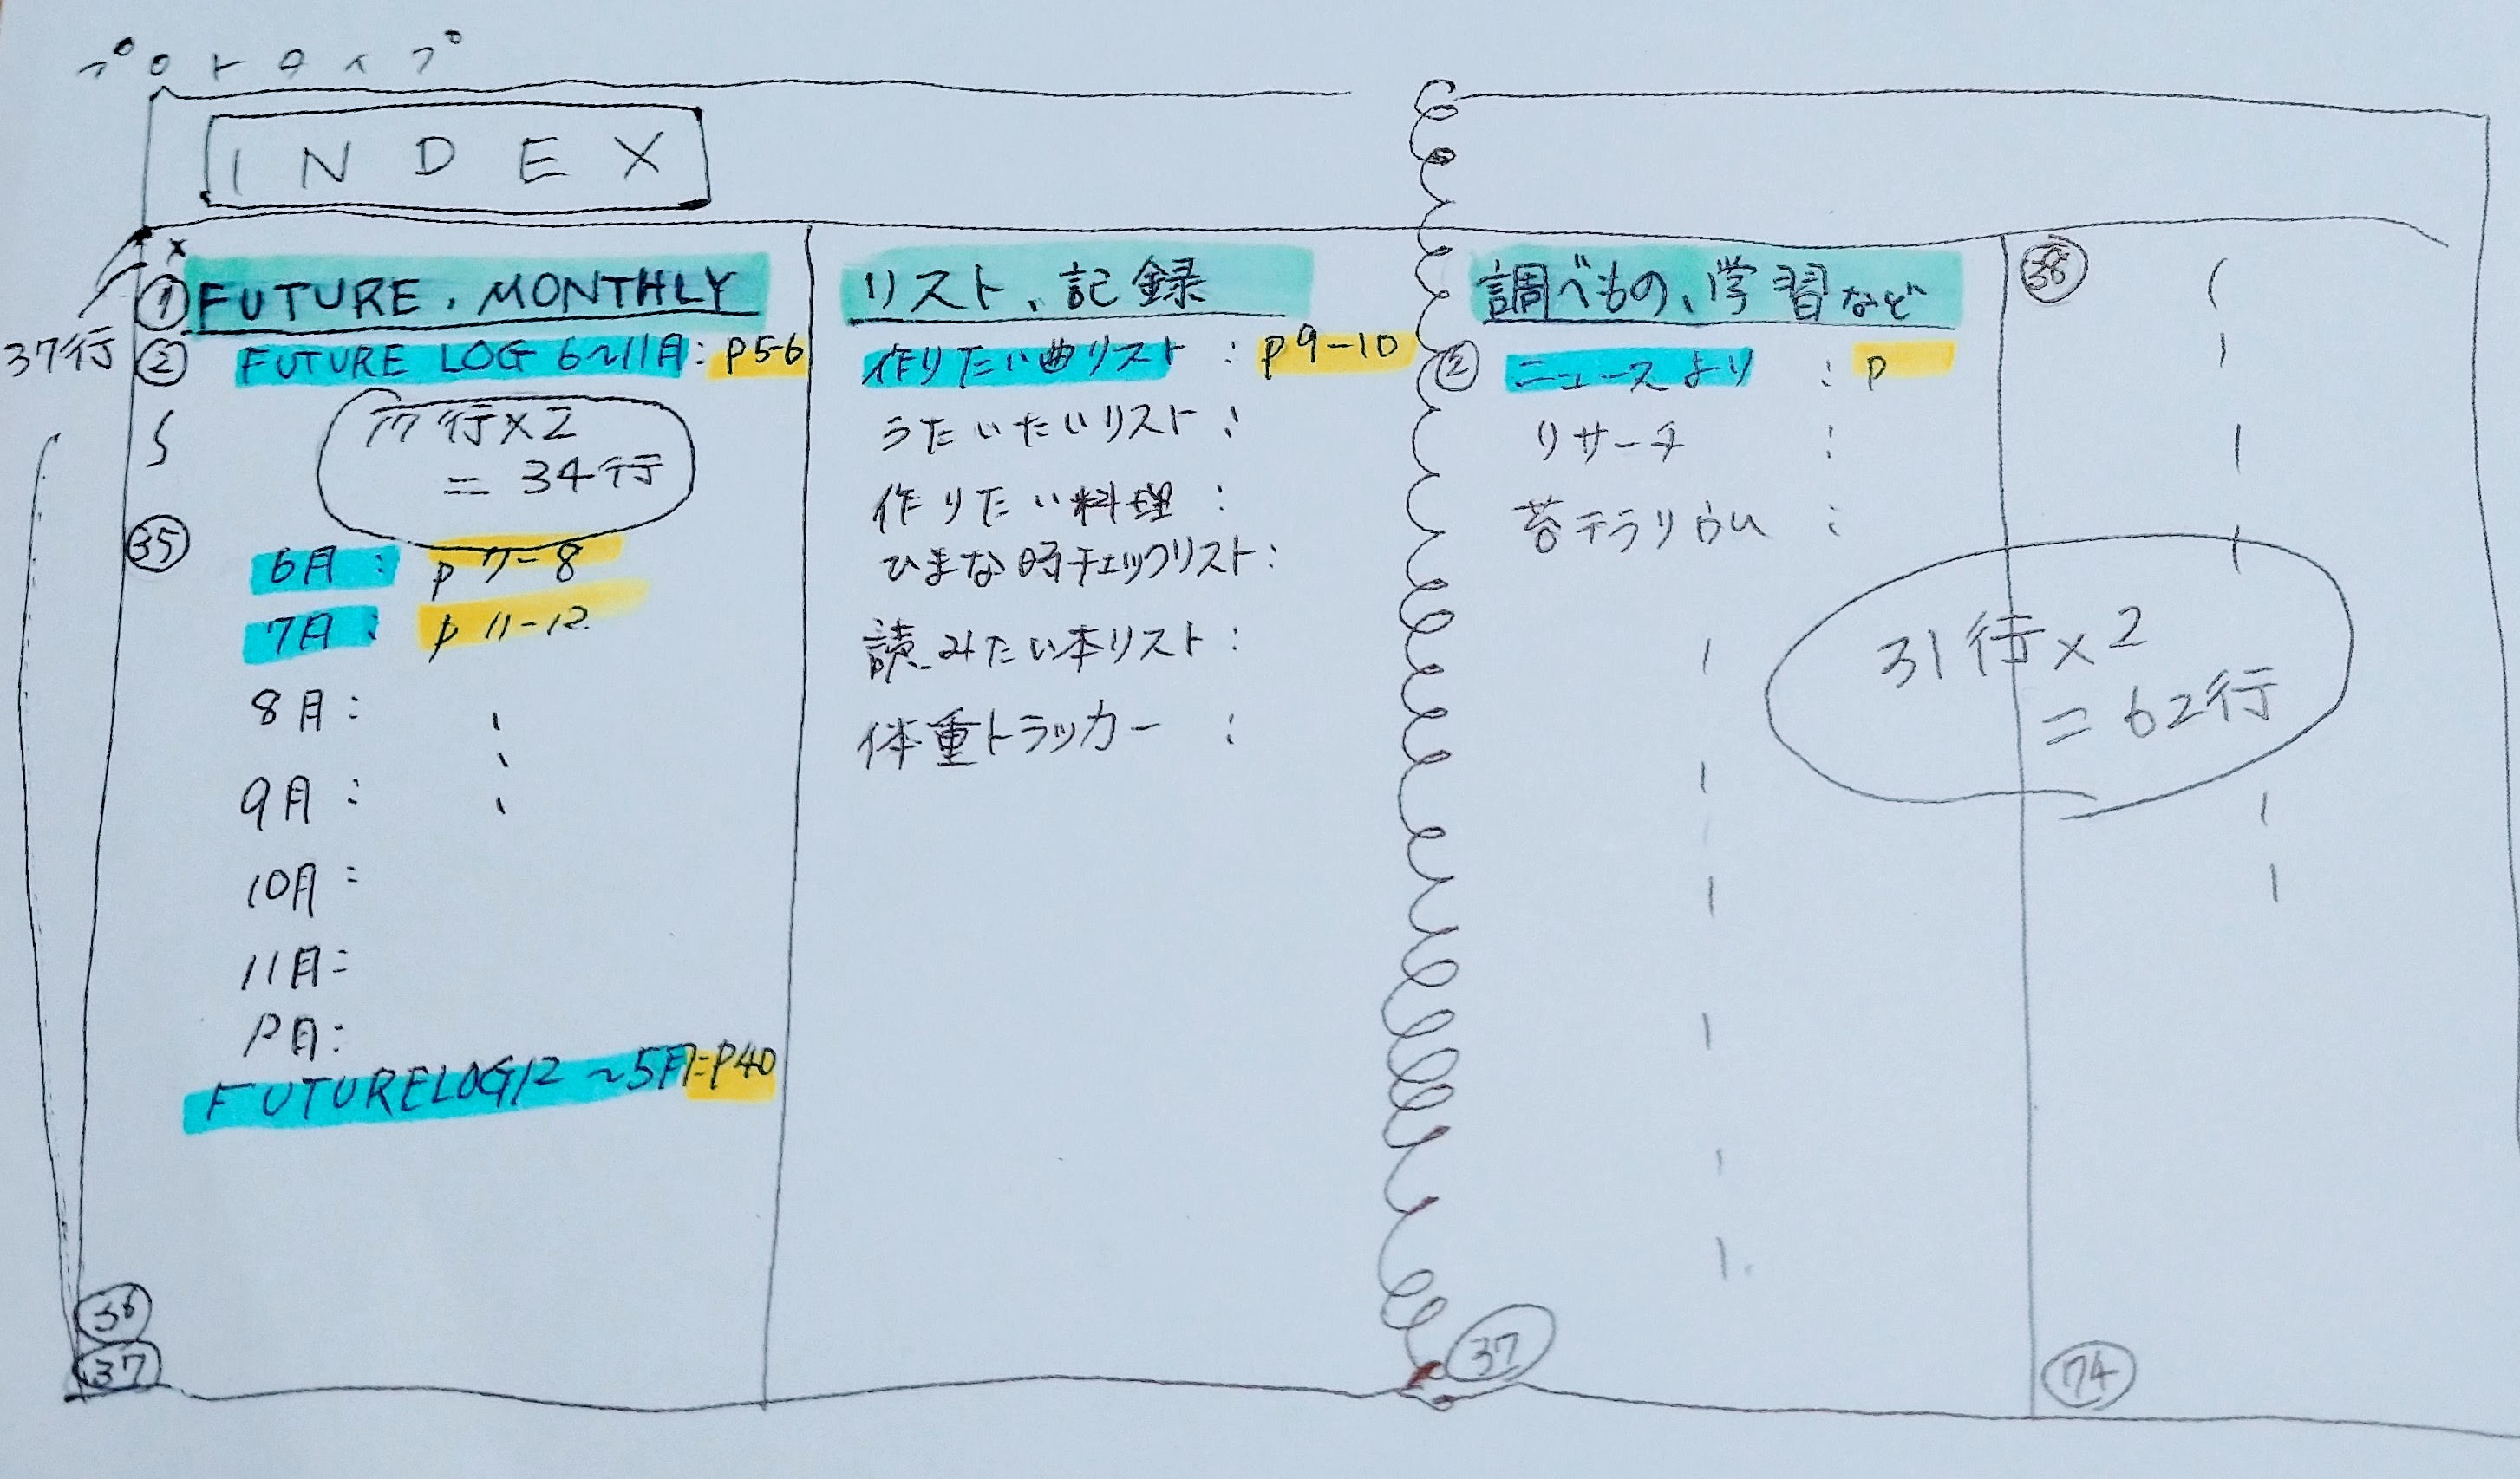 プロトタイプ
INDEX
37行
① FUTURE. MONTHLY
② FUTURE LOG 6〜11月: P5-6
行×2
= 34行
㉟
6月: p 7-8
7月: p 11-12
8月:
9月:
10月:
11月:
12月:
FUTURELOG12〜5月:P40
㊱
㊲
リスト、記録
作りたい曲リスト: p9-10
うたいたいリスト:
作りたい料理:
ひまな時チェックリスト:
読みたい本リスト:
体重トラッカー:
調べもの、学習など
② ニュースより: p
リサーチ:
苔テラリウム:
㊲
㊳
31行×2
= 62行
74